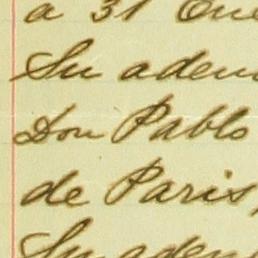 a 31 Ene
Su aden
Don Pablo
de Paris,
Su aden